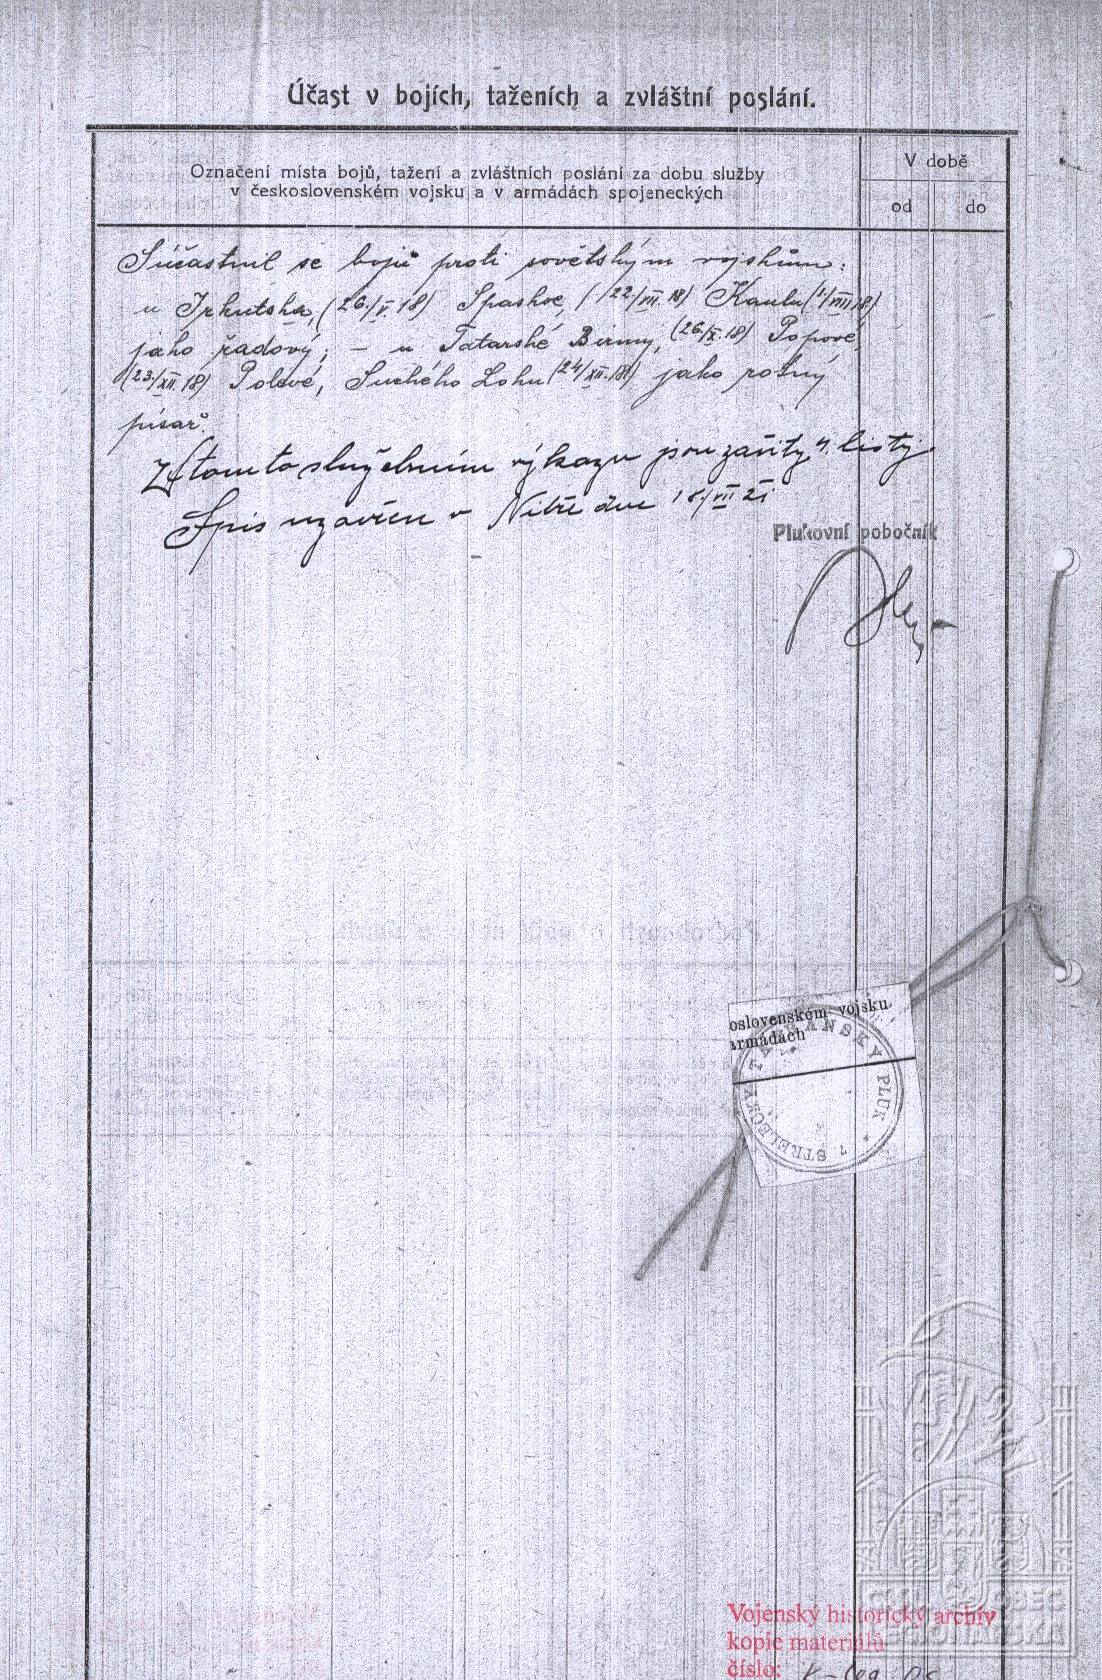 Účast v bojích, taženích a zvláštní poslání.
Označení místa bojů, tažení a zvláštních poslání za dobu služby
v československém vojsku a v armádách spojeneckých
V době
od
do
Súčastnil se bojů proti sovětským vojskům:
u Irkutska, (26./V.18) Spaskoe, (22./VII.18) Kaulu (1/VIII.18)
jako řadový; – u Tatarské Birmy, (26./X.18) Popové,
(23./XII.18) Polevé, Suchého Lohu (24/XII.18) jako rotný
písař.
V tomto služebním výkazu jsou zašity 4. listy.
Spis uzavřen v Nitře dne 18/VII 21
Plukovní pobočník
oslovenském vojsku
armádách
7 STŘELECKÝ TATRANSKÝ PLUK *
Vojenský historický archiv
kopie materiálů
číslo: